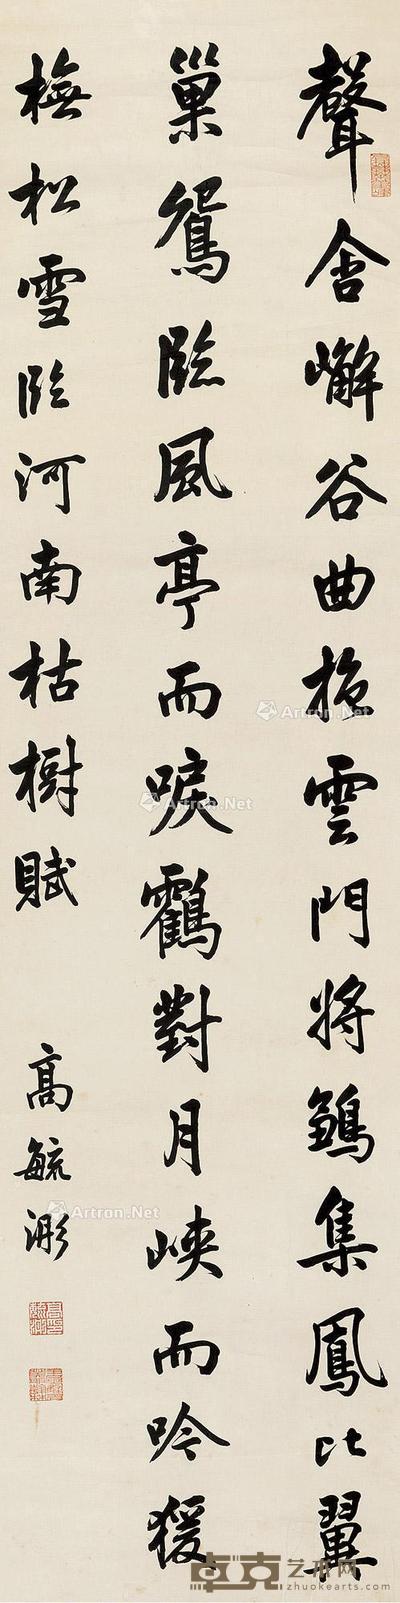 聲含嶰谷曲抱雲門將鶵集鳳比翼
巢鴛臨風亭而唳鶴對月峽而吟猨
橅松雪臨河南枯樹賦
高毓浵
Artron.Net
Artron.Net
Artron.Net
Artron.Net
卓克艺术网
zhuokearts.com